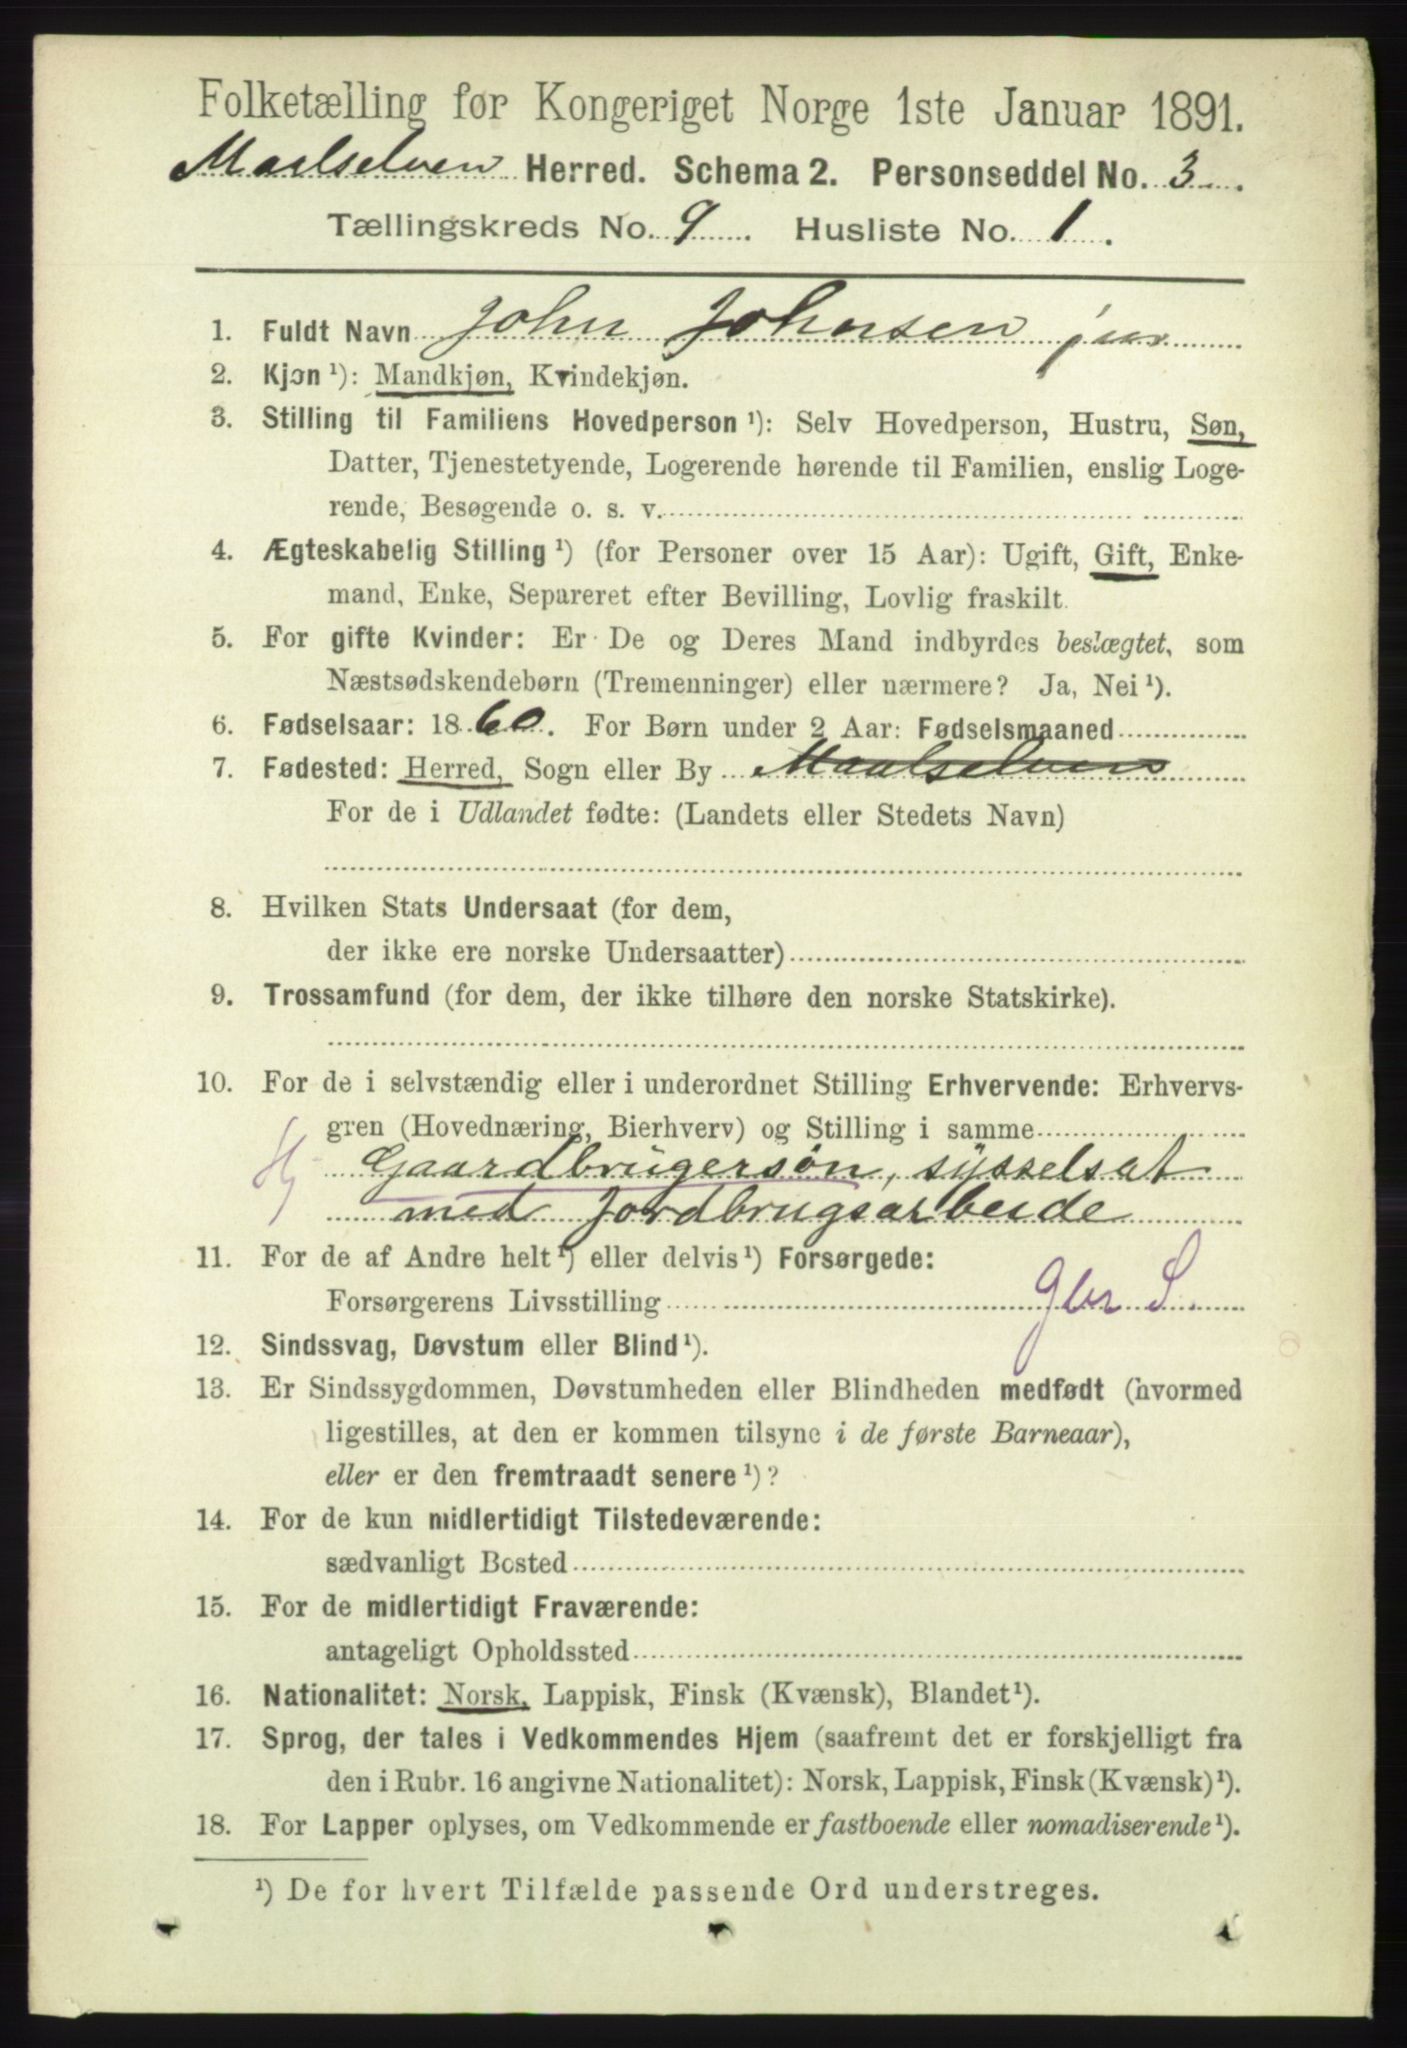 Folketælling for Kongeriget Norge 1ste Januar 1891.
Maalselven Herred. Schema 2. Personseddel No. 3.
Tællingskreds No. 9. Husliste No. 1.
1. Fuldt Navn John Johnsen jun.
2. Kjøn ¹): Mandkjøn, Kvindekjøn.
3. Stilling til Familiens Hovedperson ¹): Selv Hovedperson, Hustru, Søn,
Datter, Tjenestetyende, Logerende hørende til Familien, enslig Loge-
rende, Besøgende o. s. v.
4. Ægteskabelig Stilling ¹) (for Personer over 15 Aar): Ugift, Gift, Enke-
mand, Enke, Separeret efter Bevilling, Lovlig fraskilt.
5. For gifte Kvinder: Er De og Deres Mand indbyrdes beslægtet, som
Næstsødskendebørn (Tremenninger) eller nærmere? Ja, Nei ¹).
6. Fødselsaar: 1860. For Børn under 2 Aar: Fødselsmaaned
7. Fødested: Herred, Sogn eller By Maalselven
For de i Udlandet fødte: (Landets eller Stedets Navn)
8. Hvilken Stats Undersaat (for dem,
der ikke ere norske Undersaatter)
9. Trossamfund (for dem, der ikke tilhøre den norske Statskirke).
10. For de i selvstændig eller i underordnet Stilling Erhvervende: Erhvervs-
gren (Hovednæring, Bierhverv) og Stilling i samme
Hj Gaardbrugersøn, sysselsat
med Jordbrugsarbeide
11. For de af Andre helt ¹) eller delvis ¹) Forsørgede:
Forsørgerens Livsstilling Gbr S.
12. Sindssvag, Døvstum eller Blind ¹).
13. Er Sindssygdommen, Døvstumheden eller Blindheden medfødt (hvormed
ligestilles, at den er kommen tilsyne i de første Barneaar),
eller er den fremtraadt senere ¹)?
14. For de kun midlertidigt Tilstedeværende:
sædvanligt Bosted
15. For de midlertidigt Fraværende:
antageligt Opholdssted
16. Nationalitet: Norsk, Lappisk, Finsk (Kvænsk), Blandet ¹).
17. Sprog, der tales i Vedkommendes Hjem (saafremt det er forskjelligt fra
den i Rubr. 16 angivne Nationalitet): Norsk, Lappisk, Finsk (Kvænsk) ¹).
18. For Lapper oplyses, om Vedkommende er fastboende eller nomadiserende ¹).
¹) De for hvert Tilfælde passende Ord understreges.